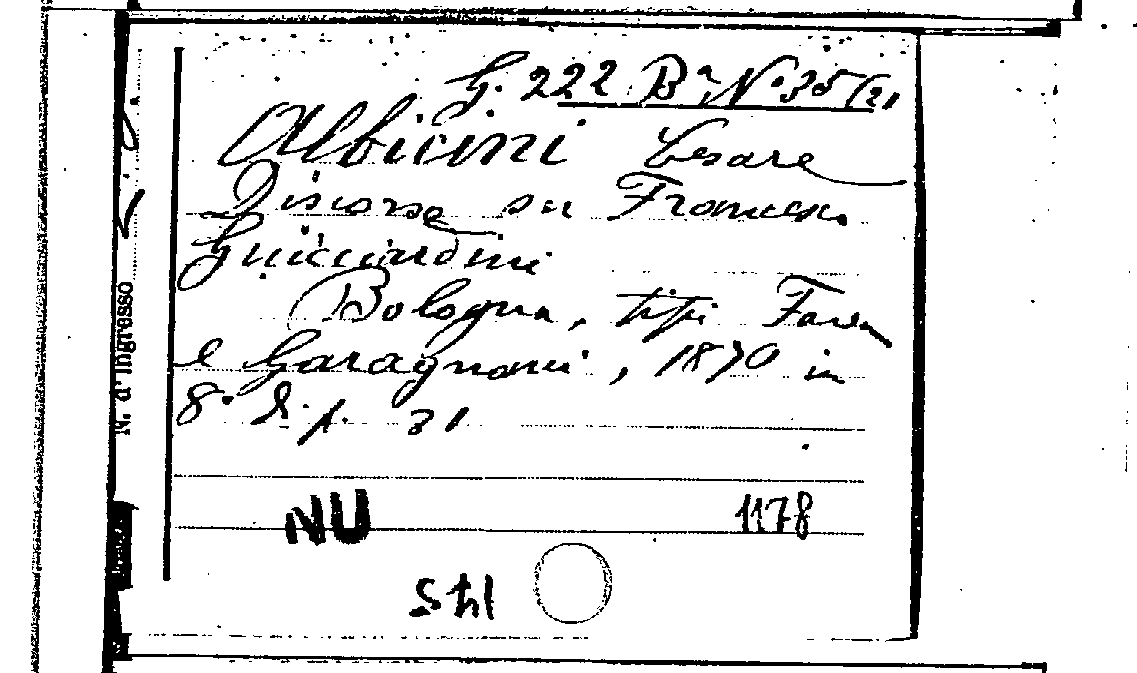 G. 222 Bª N° 35/21
Albicini Cesare
Discorso su Francesco
Guicciardini
Bologna, tipi Fava
e Garagnani, 1870 in
8° di p. 31
N. d'Ingresso
NU 1178
145